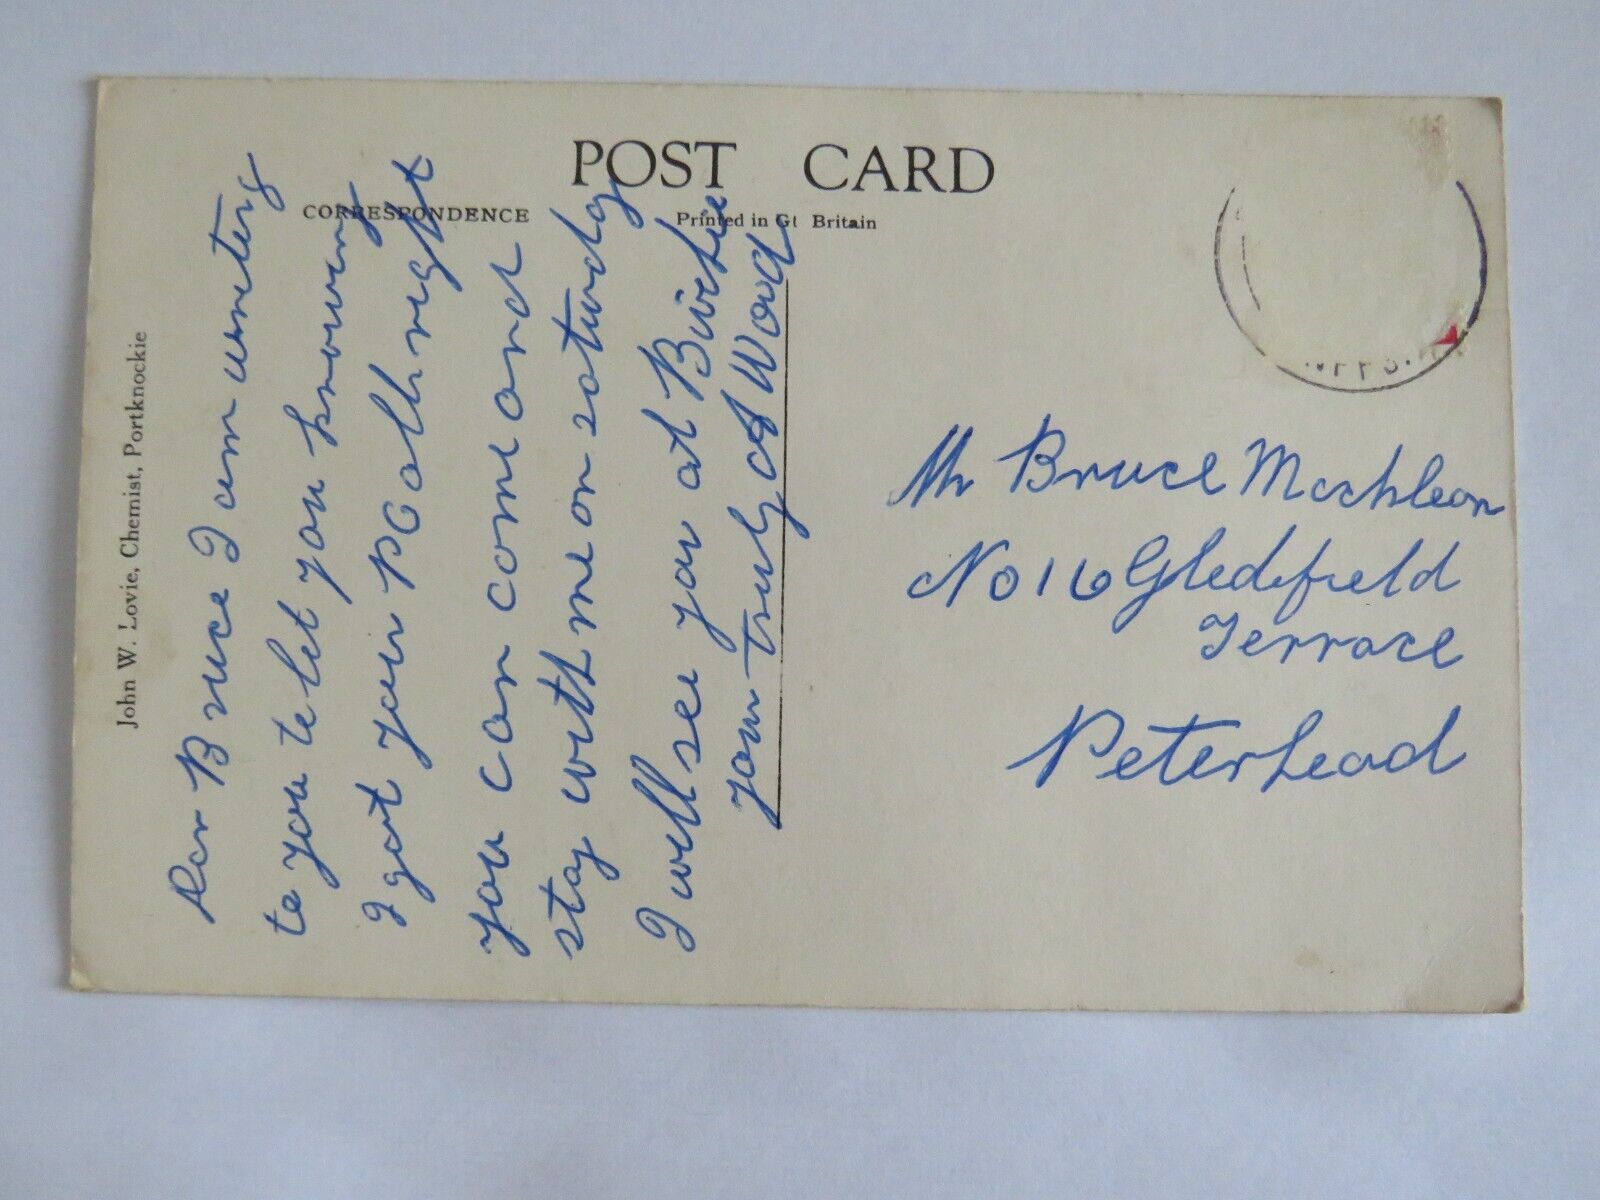 POST CARD
CORRESPONDENCE
Printed in Gt Britain
John W. Lovie, Chemist, Portknockie
Dear Bruce I am wreting
te you te let you knowing
I got your PC all right
you can come and
stay with me on saturdy
I will see you at
your truly A Wood
Mr Bruce
No 16 Gledefield
Terrace
Peterhead